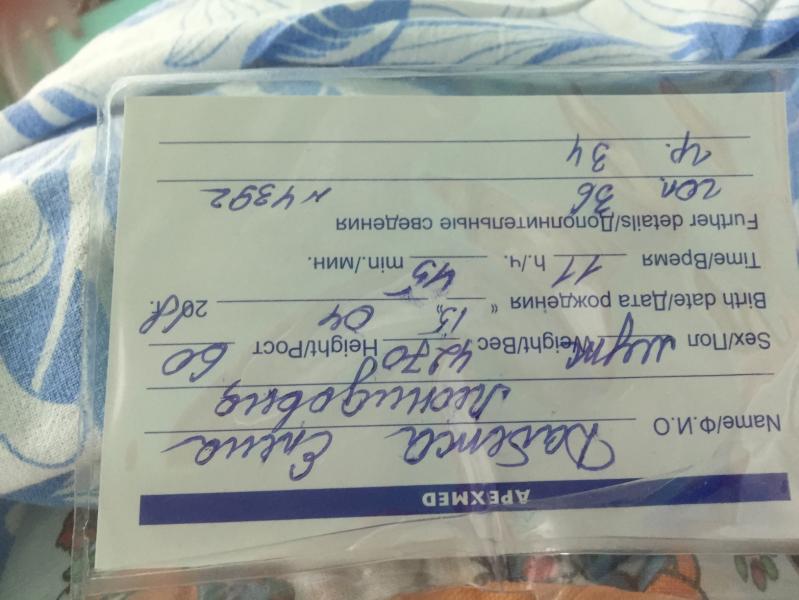 APEXMED
Name/Ф.И.О Елена
Леонидовна
Sex/Пол муж Weight/Вес 4270 Height/Рост 60
Birth date/Дата рождения " 15 " 04 20 г.
Time/Время 11 h./ч. 45 min./мин.
Further details/Дополнительные сведения
гол. 36 N4392
гр. 34